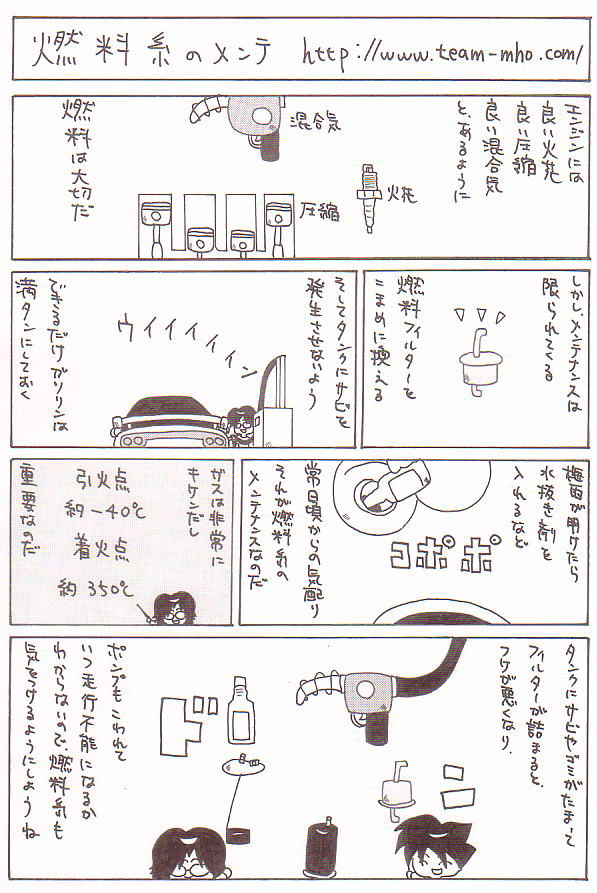 燃料系のメンテ http://www.team-mho.com/
エンジンには
良い火花
良い圧縮
良い混合気
と、あるように
混合気
火花
圧縮
燃料は大切だ
しかし、メンテナンスは
限られてくる
燃料フィルターを
こまめに換える
そしてタンクにサビを
発生させないよう
ウイイイイイン
できるだけガソリンは
満タンにしておく
梅雨が明けたら
水抜き剤を
入れるなど
コポポ
常日頃からの気配り
それが燃料系の
メンテナンスなのだ
ガスは非常に
キケンだし
引火点
約-40℃
着火点
約350℃
重要なのだ
タンクにサビやゴミがたまって
フィルターが詰まると、
フケが悪くなり、
ド
ポンプもこわれて
いつ走行不能になるか
わからないので、燃料系も
気をつけるようにしようね